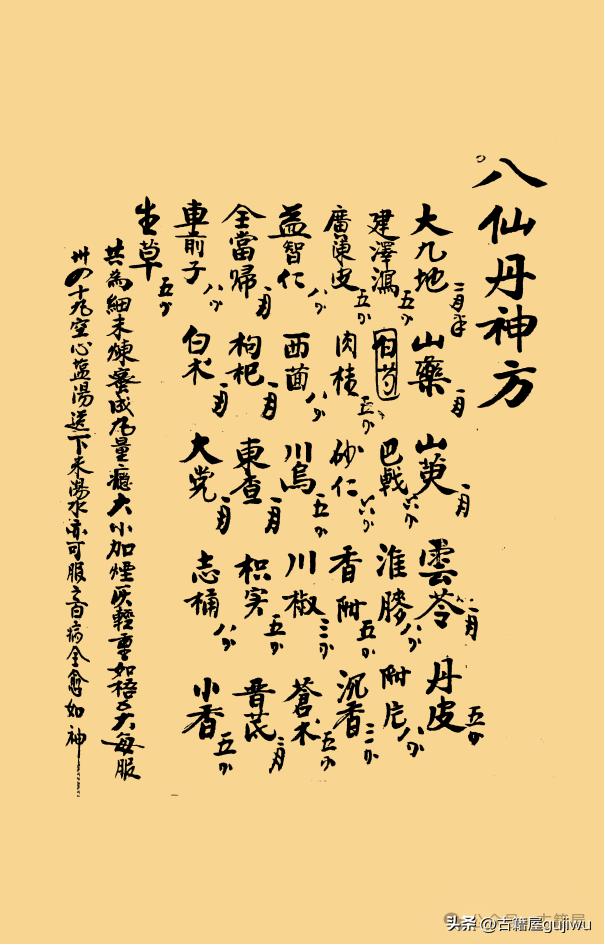 八仙丹神方
大九地 山藥 山萸 雲苓 丹皮五分
建澤瀉五分 白芍 巴戟 淮膝八分 附片八分
廣陳皮五分 肉桂五分 砂仁 香附五分 沉香三分
益智仁八分 西茴八分 川烏五分 川椒三分 蒼术五分
全當歸 枸杞 東查 枳实五分 晋芪
車前子八分 白术 大党 志桶八分 小香五分
生草五分
共為細末煉蜜成九量癮大小加煙灰輕重如梧子大每服
卅四十九空心盐湯送下米湯水亦可服之百病全愈如神
头条 @古籍屋gujiwu